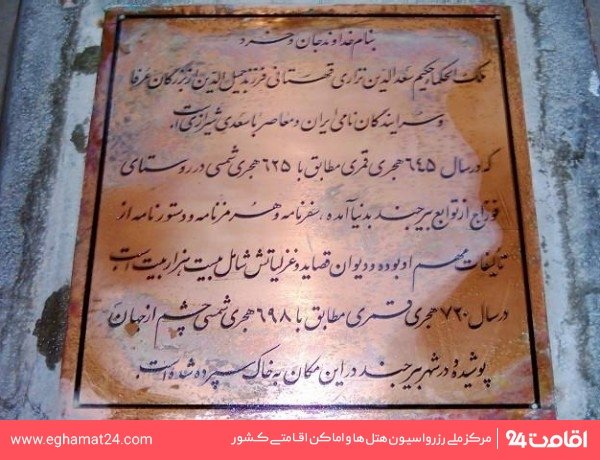 بنام خداوند جان و خرد
ملک الحکما حکیم سعدالدین نزاری قهستانی فرزند جمیل الدین از بزرگان عرفا
و سرایندگان نامی ایران و معاصر با سعدی شیرازی است.
که در سال ۶۴۵ هجری قمری مطابق با ۶۲۵ هجری شمسی در روستای
فوداج از توابع بیرجند بدنیا آمده ، سفرنامه و هرمزنامه و دستورنامه از
تألیفات مهم او بوده و دیوان قصاید و غزلیاتش شامل بیست هزار بیت است
در سال ۷۲۰ هجری قمری مطابق با ۶۹۸ هجری شمسی چشم از جهان
پوشیده و در شهر بیرجند در این مکان به خاک سپرده شده است
اقامت 24 | مرکز ملی رزرواسیون هتل ها و اماکن اقامتی کشور
www.eghamat24.com